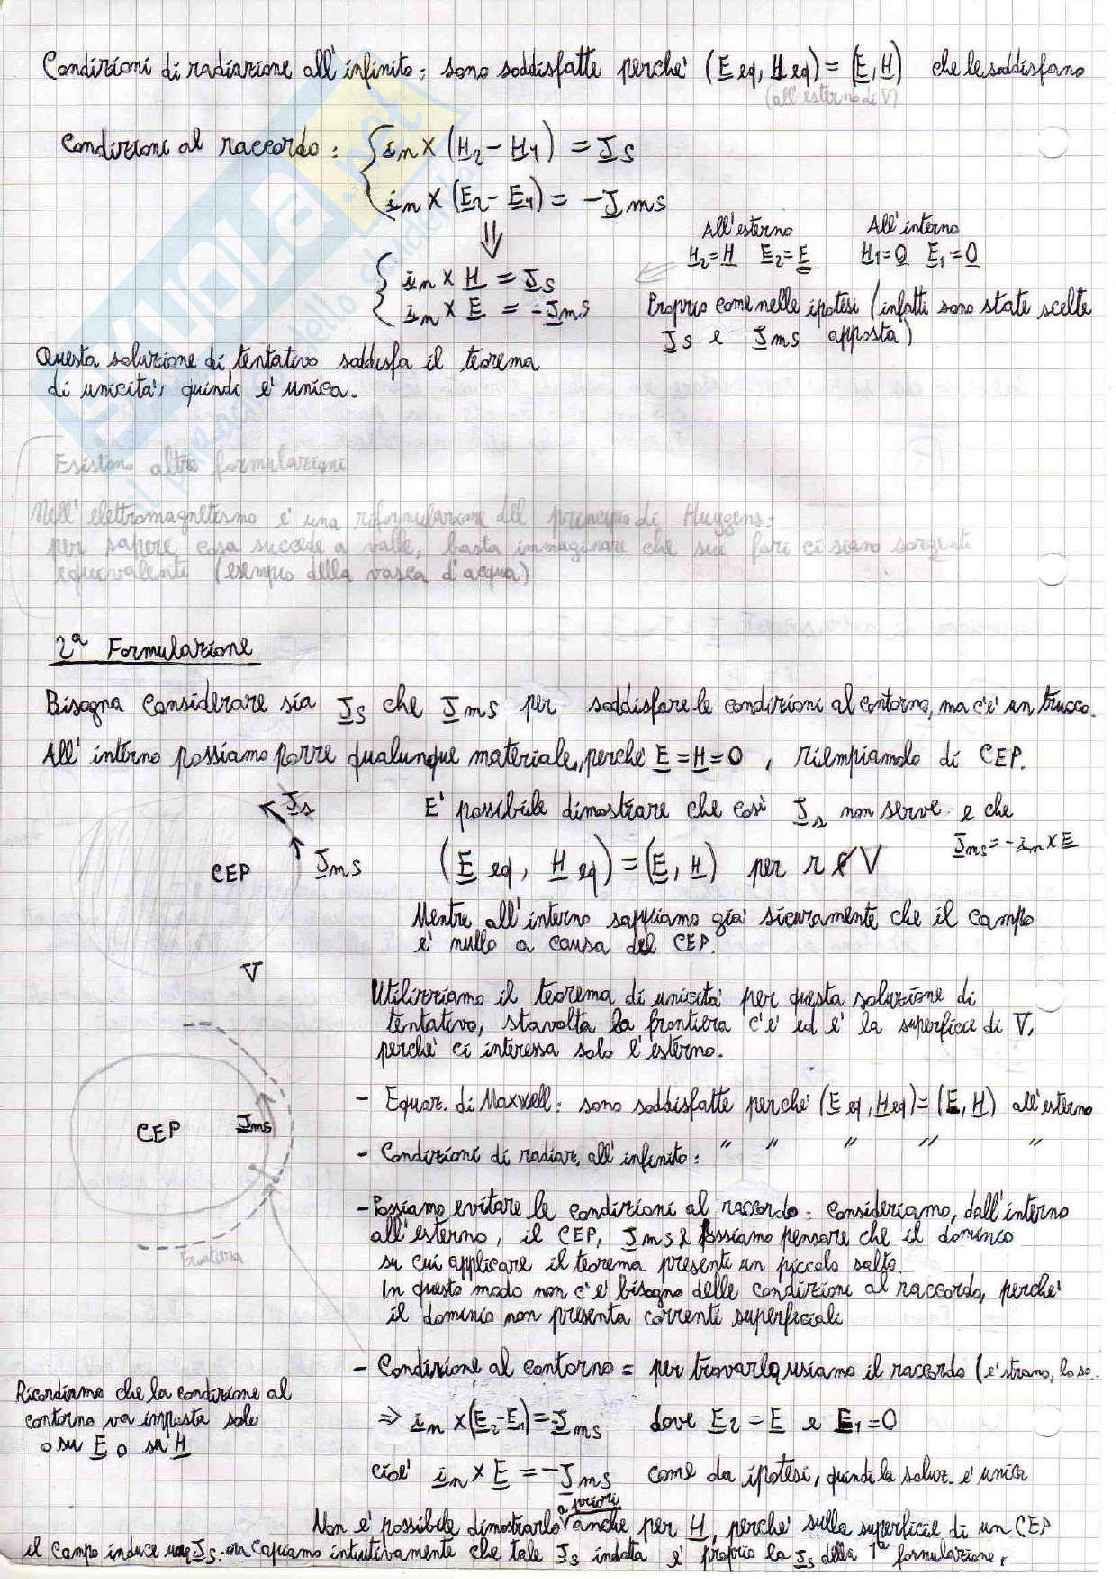 Condizioni di radiazione all'infinito: sono soddisfatte perché (E eq, H eq) = (E, H) che le soddisfano
(all'esterno di V)
Condizioni al raccordo: { in × (H2 - H1) = Js
in × (E2 - E1) = - Jms
⇓
All'esterno All'interno
H2 = H E2 = E H1 = 0 E1 = 0
{ in × H = Js
in × E = - Jms
Proprio come nelle ipotesi (infatti sono state scelte
Js e Jms apposta)
Questa soluzione di tentativo soddisfa il teorema
di unicità, quindi è unica.
Esistono altre formulazioni
Nell'elettromagnetismo è una riformulazione del principio di Huygens:
per sapere cosa succede a valle, basta immaginare che sui fori ci siano sorgenti
equivalenti (esempio della vasca d'acqua)
2ª Formulazione
Bisogna considerare sia Js che Jms per soddisfare le condizioni al contorno, ma c'è un trucco.
All'interno possiamo porre qualunque materiale, perché E = H = 0, riempiamolo di CEP.
Js
E' possibile dimostrare che così Js non serve e che
Jms = - in × E
CEP Jms
(E eq, H eq) = (E, H) per r ∉ V
Mentre all'interno sappiamo già sicuramente che il campo
è nullo a causa del CEP.
V
Utilizziamo il teorema di unicità per questa soluzione di
tentativo, stavolta la frontiera c'è ed è la superficie di V,
perché ci interessa solo l'esterno.
- Equaz. di Maxwell: sono soddisfatte perché (E eq, H eq) = (E, H) all'esterno
CEP Jms
- Condizioni di radiaz. all'infinito: " " " " "
- Possiamo evitare le condizioni al raccordo: consideriamo, dall'interno
all'esterno, il CEP, Jms, possiamo pensare che il dominio
su cui applicare il teorema presenti un piccolo salto.
Frontiera
In questo modo non c'è bisogno delle condizione al raccordo, perché
il dominio non presenta correnti superficiali
- Condizione al contorno = per trovarla usiamo il raccordo (è strano, lo so.
Ricordiamo che la condizione al
contorno va imposta solo
o su E o su H
⇒ in × (E2 - E1) = - Jms dove E2 = E e E1 = 0
cioè in × E = - Jms come da ipotesi, quindi la soluz. è unica
a priori
Non è possibile dimostrarlo anche per H, perché sulla superficie di un CEP
il campo induce una Js. capiamo intuitivamente che tale Js indotta è proprio la Js della 1ª formulazione.